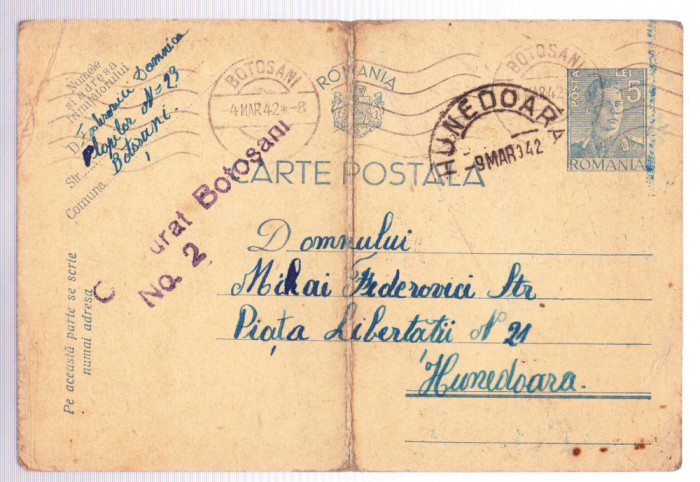 Numele
și adresa
trimițătorului
D. Federovici Domnica
Str. Plopilor Nº 23
Comuna Botosani.
BOTOSANI
4 MAR. 42 * - 8
ROMANIA
CARTE POSTALA
BOTOSANI
MAR. 42
HUNEDOARA
9 MAR 942
POSTA LEI
5
ROMANIA
C urat Botoşani
No. 2
Pe această parte se scrie
numai adresa
Domnului
Mihai Federovici Str
Piaţa Libertatii Nº 21
Hunedoara.